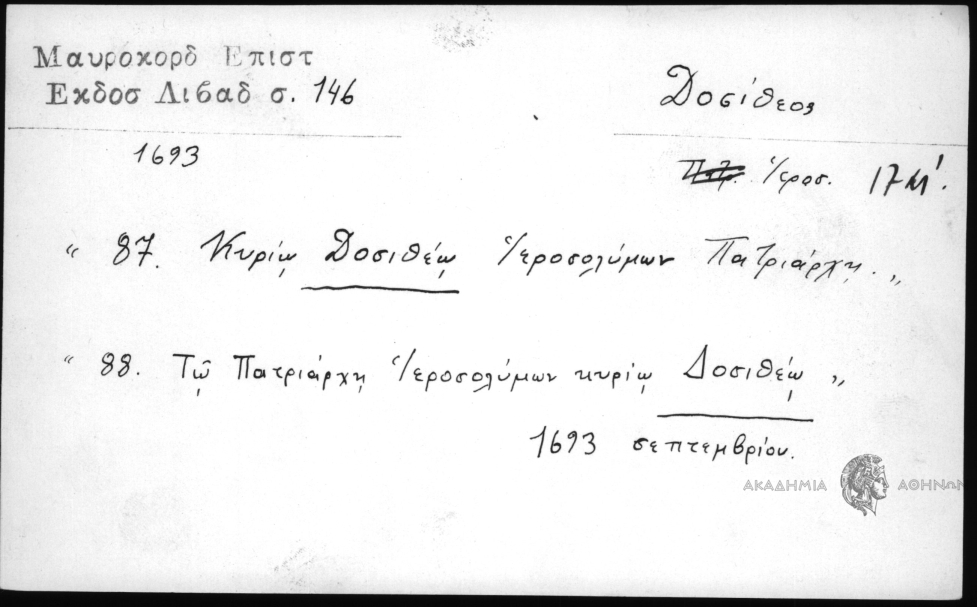 Μαυροκορδ Επιστ
Εκδοσ Λιβαδ σ. 146
Δοσίθεος
1693
Πατρ. Ἱεροσ. 17
" 87. Κυρίῳ Δοσιθέῳ Ἱεροσολύμων Πατριάρχῃ. „
" 88. Τῷ Πατριάρχῃ Ἱεροσολύμων κυρίῳ Δοσιθέῳ „
1693 σεπτεμβρίου.
ΑΚΑΔΗΜΙΑ ΑΘΗΝΩΝ